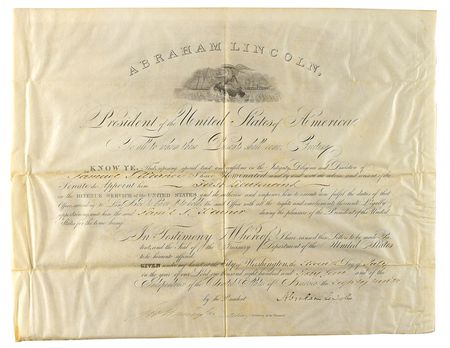 ABRAHAM LINCOLN,
President of the United States of America
To all to whom these Presents shall come, Greeting
KNOW YE, That reposing special trust and confidence in the Integrity, Diligence and Discretion of
I have Nominated and by and with the advice and consent of the
Senate do Appoint him
in the REVENUE SERVICE of the UNITED STATES, and do authorize and empower him to execute and fulfil the duties of that
Office according to Law: And to Have and to Hold the said Office with all the rights and emoluments thereunto legally
appertaining unto him the said during the pleasure of the President of the United
States for the time being.
In Testimony Whereof I have caused these Letters to be made
Patent, and the Seal of the Treasury Department of the United States
to be hereunto affixed.
GIVEN under my hand, at the City of Washington, the Day of July
in the year of our Lord one thousand eight hundred and and of the
Independence of the United States of America the
by the President
Abraham Lincoln
Secretary of the Treasury